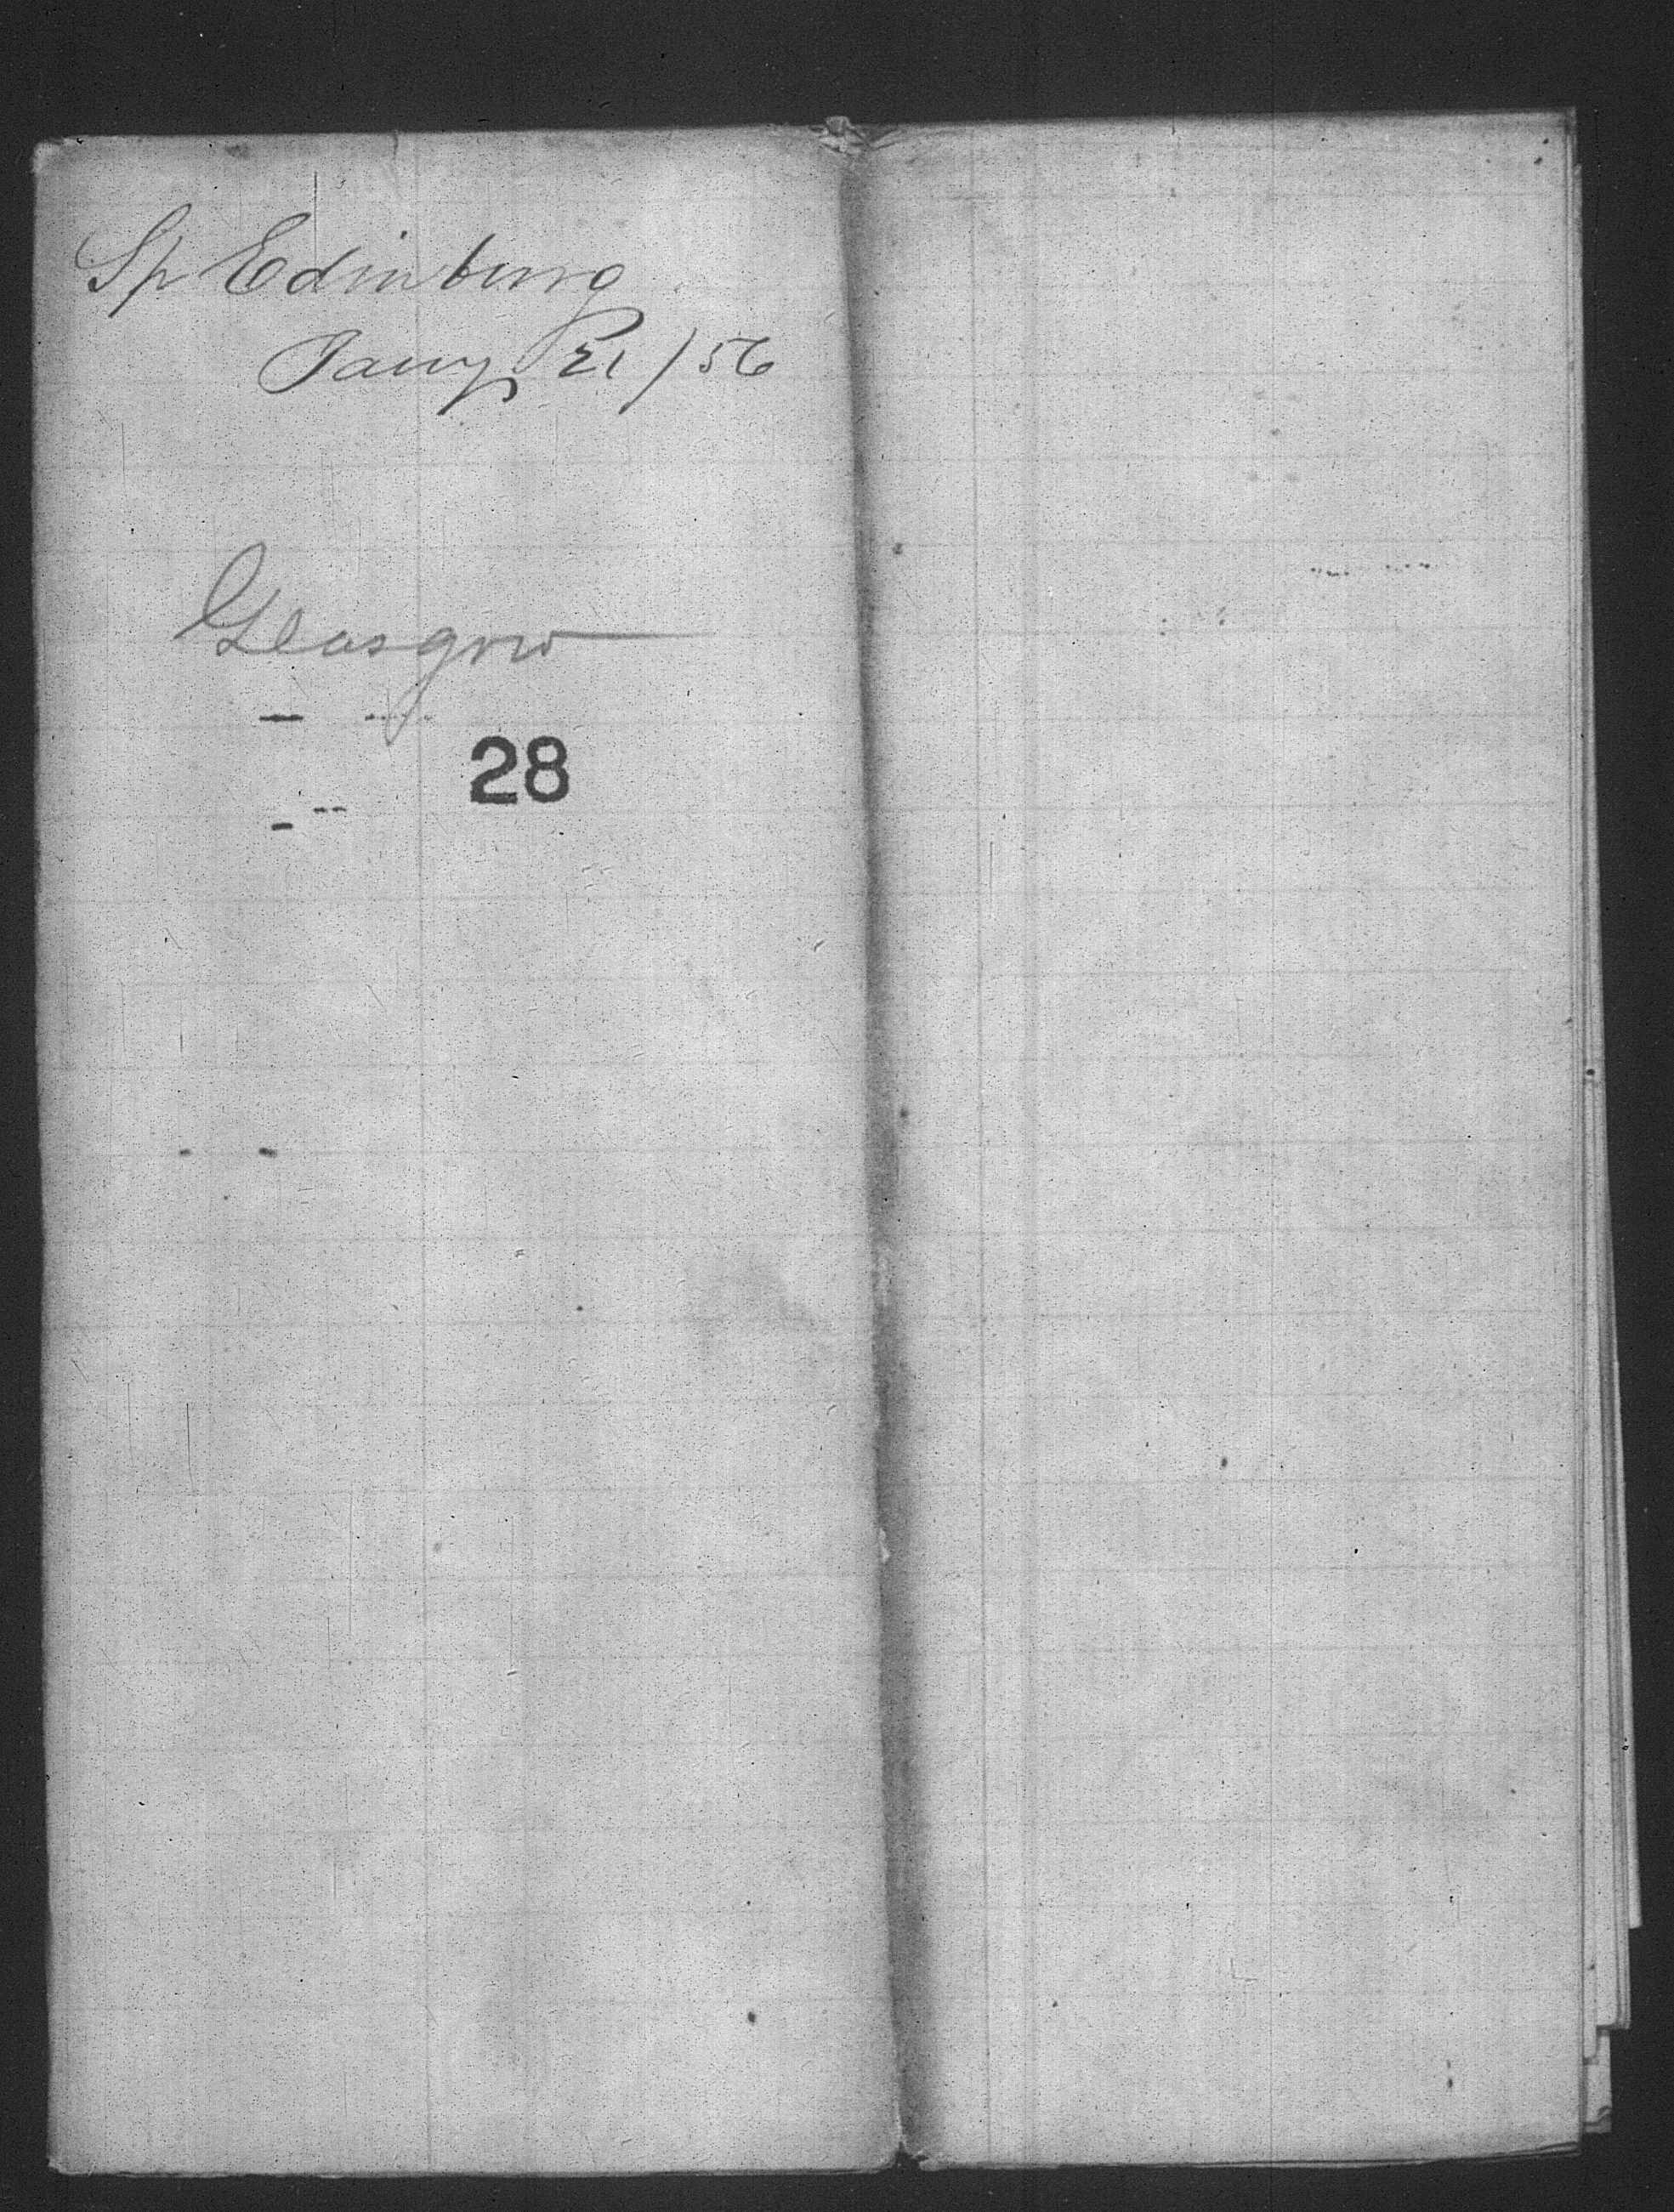 Sp Edinburg
Jany 21/56
Glasgow
28